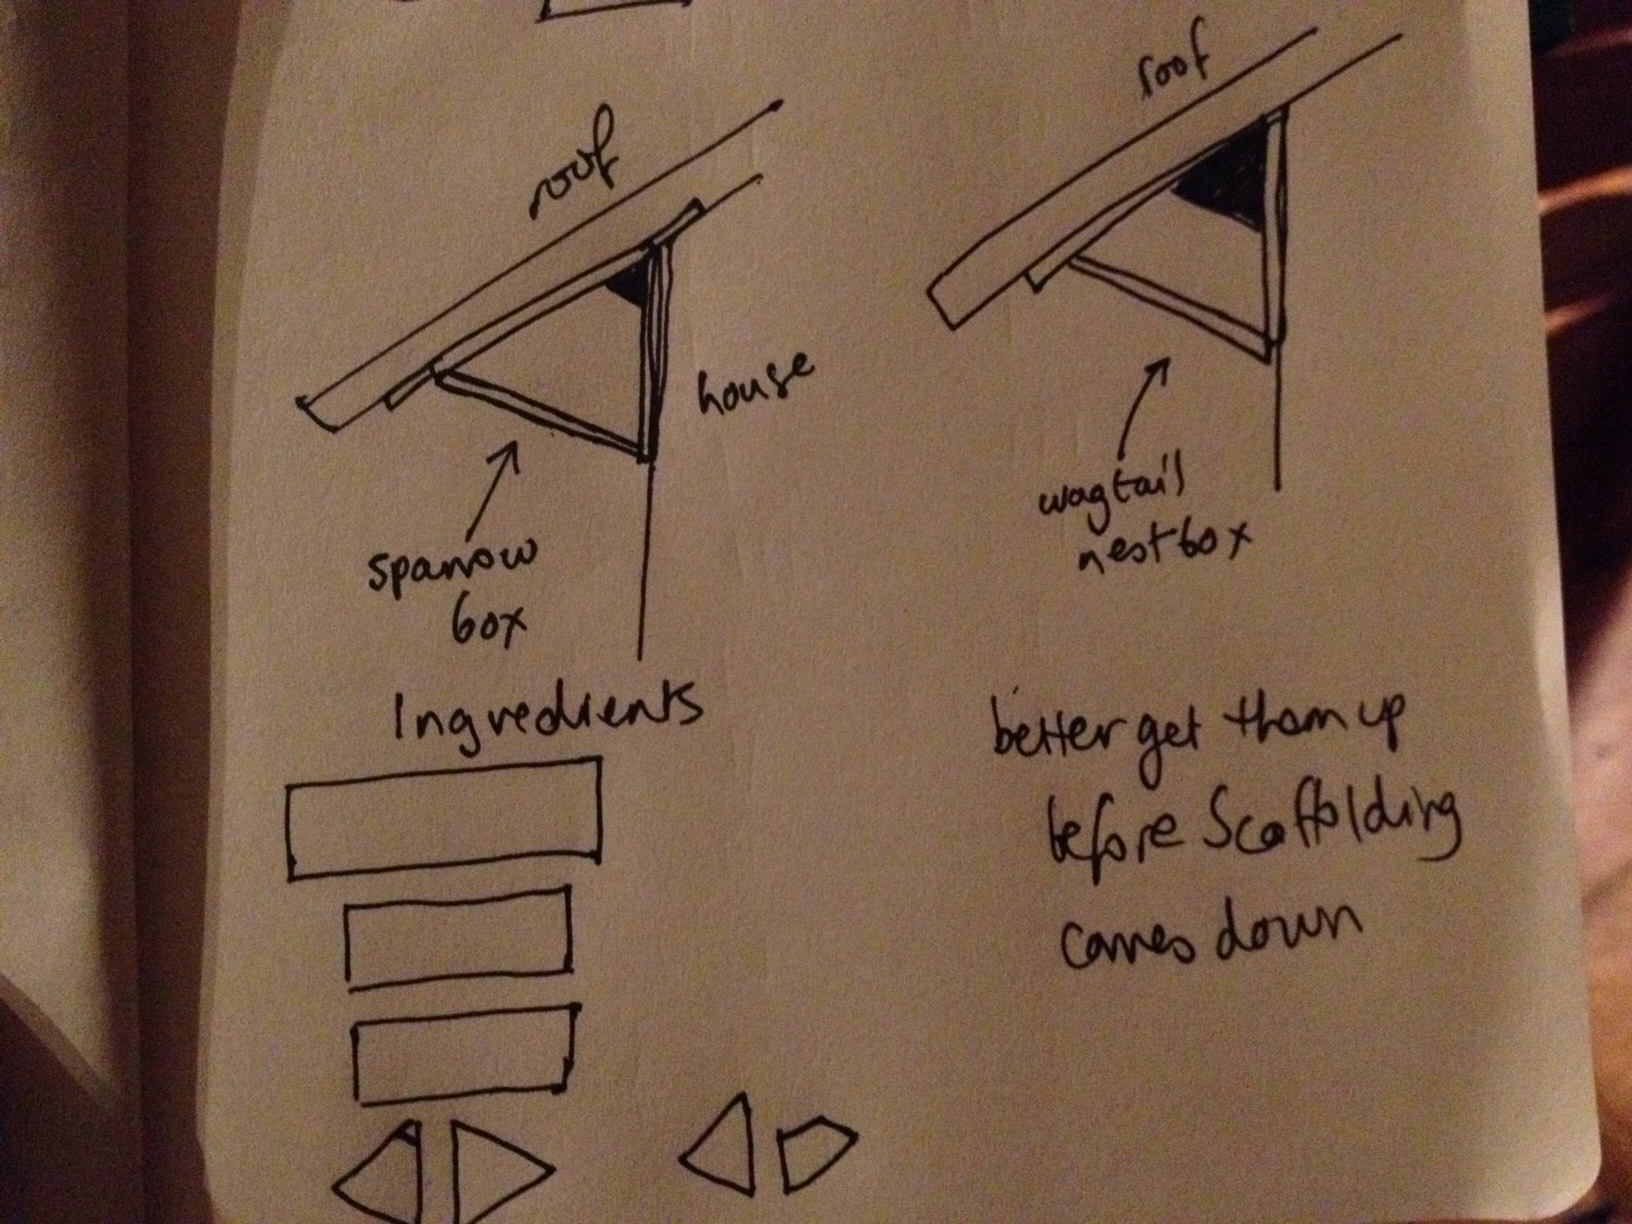 roof
house
sparrow
box
roof
wagtail
nestbox
Ingredients
better get them up
before Scaffolding
comes down